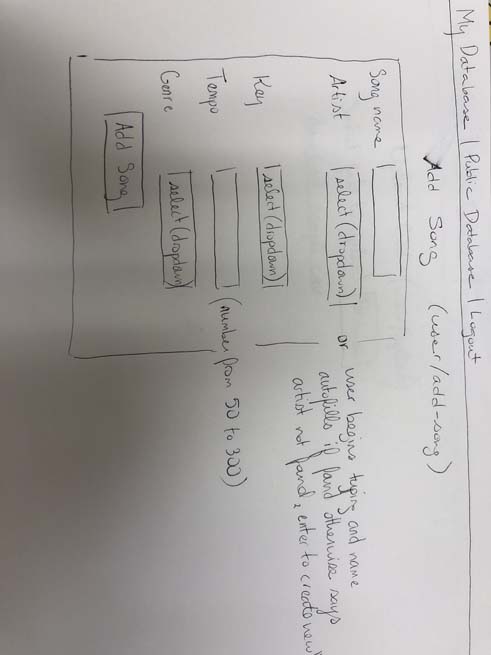 My Database | Public Database | Logout
Add Song (user/add-song)
Song name
Artist select (dropdown) or user begins typing and name
autofills if found otherwise says
artist not found, enter to create new"
Key select (dropdown)
Tempo (number from 50 to 300)
Genre select (dropdown)
Add Song